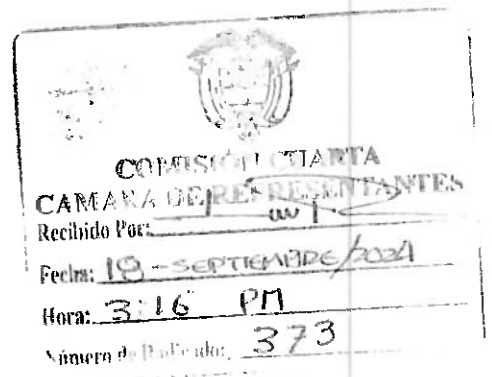 COMISIÓN CUARTA
CAMARA DE REPRESENTANTES
Recibido Por:
Fecha: 19 - SEPTIEMBRE/2024
Hora: 3:16 PM
Número de Radicado: 373